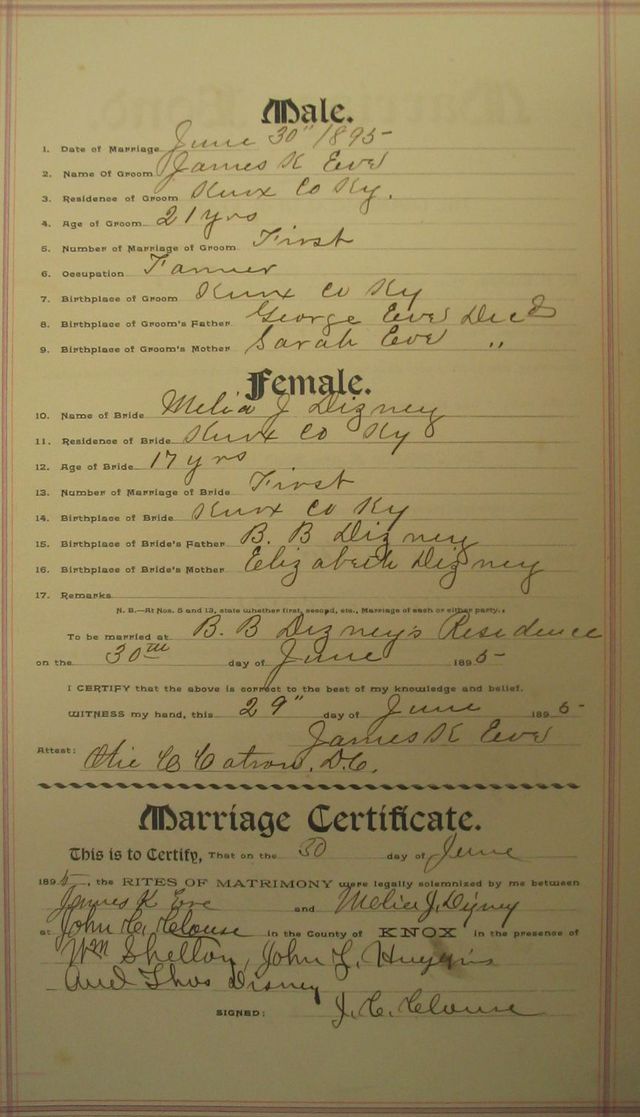 Male.
1. Date of Marriage June 30" 1895
2. Name Of Groom James K Eve
3. Residence of Groom Knox Co Ky.
4. Age of Groom 21 yrs
5. Number of Marriage of Groom First
6. Occupation Farmer
7. Birthplace of Groom Knox Co Ky
8. Birthplace of Groom's Father George Eve Decd
9. Birthplace of Groom's Mother Sarah Eve "
Female.
10. Name of Bride Melia J Dizney
11. Residence of Bride Knox Co Ky
12. Age of Bride 17 yrs
13. Number of Marriage of Bride First
14. Birthplace of Bride Knox Co Ky
15. Birthplace of Bride's Father B. B Dizney
16. Birthplace of Bride's Mother Elizabeth Dizney
17. Remarks
N. B.—At Nos. 5 and 13, state whether first, second, etc., Marriage of each or either party.
To be married at B. B Dizney's Residence
on the 30th day of June 1895
I CERTIFY that the above is correct to the best of my knowledge and belief.
WITNESS my hand, this 29" day of June 1895
James K Eve
Attest: Catron, D.C.
Marriage Certificate.
This is to Certify, That on the 30 day of June
1895, the RITES OF MATRIMONY were legally solemnized by me between
James K Eve and Melia J. Dizney
at John C. Clouse in the County of KNOX in the presence of
Wm Shelton, John L. Huggins
And Thos Disney
SIGNED: J. C. Clouse